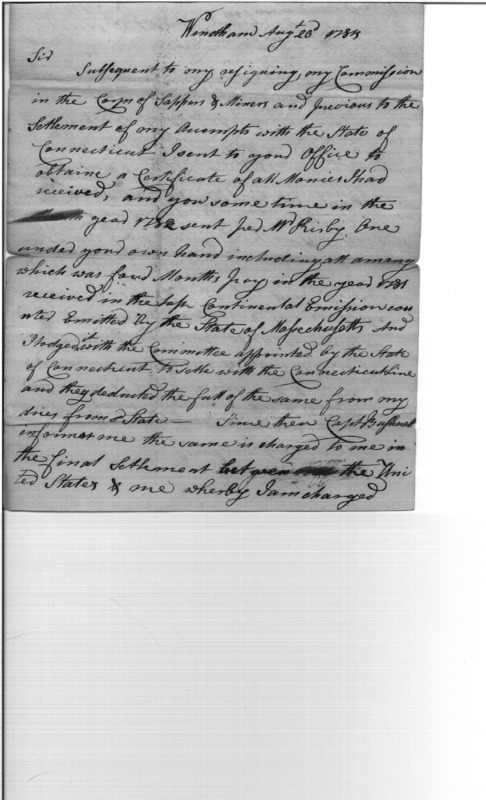 Windham Augt 23d 178
Sir
Subsequent to my resigning my Commission
in the Corps of Sappers & Miners and previous to the
Settlement of my Accompts with the State of
Connecticut I sent to your Office to
obtaine a Certificate of all Monies I had
received, and you some time in the
year 1782 sent per Mr Risby One
under your own hand including all among
which was four Months pay in the year 1781
received in the Continental Emission cou
nted Emitted By the State of Massechusetts And
I lodged it with the Committee appointed by the State
of Connecticut to settle with the Connecticut line
and they deducted the full of the same from my
dues from sd State — Since then Capt
informes me the same is charged to me in
the final Settlement between the Uni
ted States & me wherby I am charged